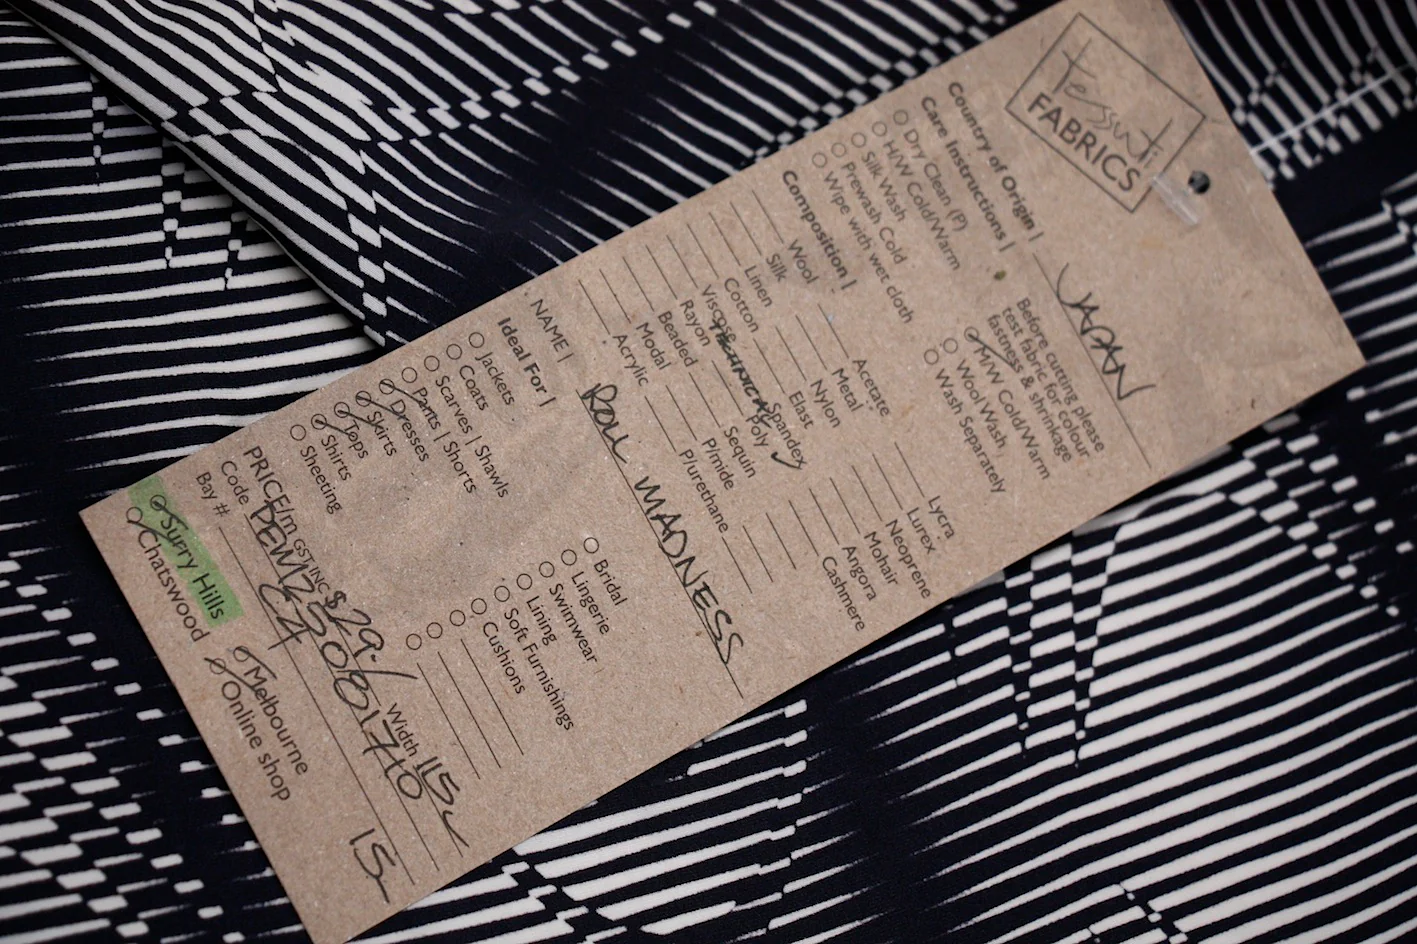 Tessuti
FABRICS
Country of Origin | JAPAN
Care Instructions |
Before cutting please
test fabric for colour
fastness & shrinkage
Dry Clean (P)
H/W Cold/Warm
Silk Wash
Prewash Cold
Wipe with wet cloth
M/W Cold/Warm
Wool Wash
Wash Separately
Composition |
Wool
Silk
Linen
Cotton
Viscose
Rayon
Beaded
Modal
Acrylic
Acetate
Metal
Nylon
Elast
Spandex
TECHNICAL Poly ✓
Sequin
P/mide
P/urethane
Lycra
Lurex
Neoprene
Mohair
Angora
Cashmere
NAME | ROLL MADNESS
Ideal For |
Jackets
Coats
Scarves | Shawls
Pants | Shorts
Dresses
Skirts
Tops
Shirts
Sheeting
Bridal
Lingerie
Swimwear
Lining
Soft Furnishings
Cushions
PRICE/m GST INC $29./ Width 115c
Code
Bay # C4
Surry Hills
Chatswood
Melbourne
Online shop